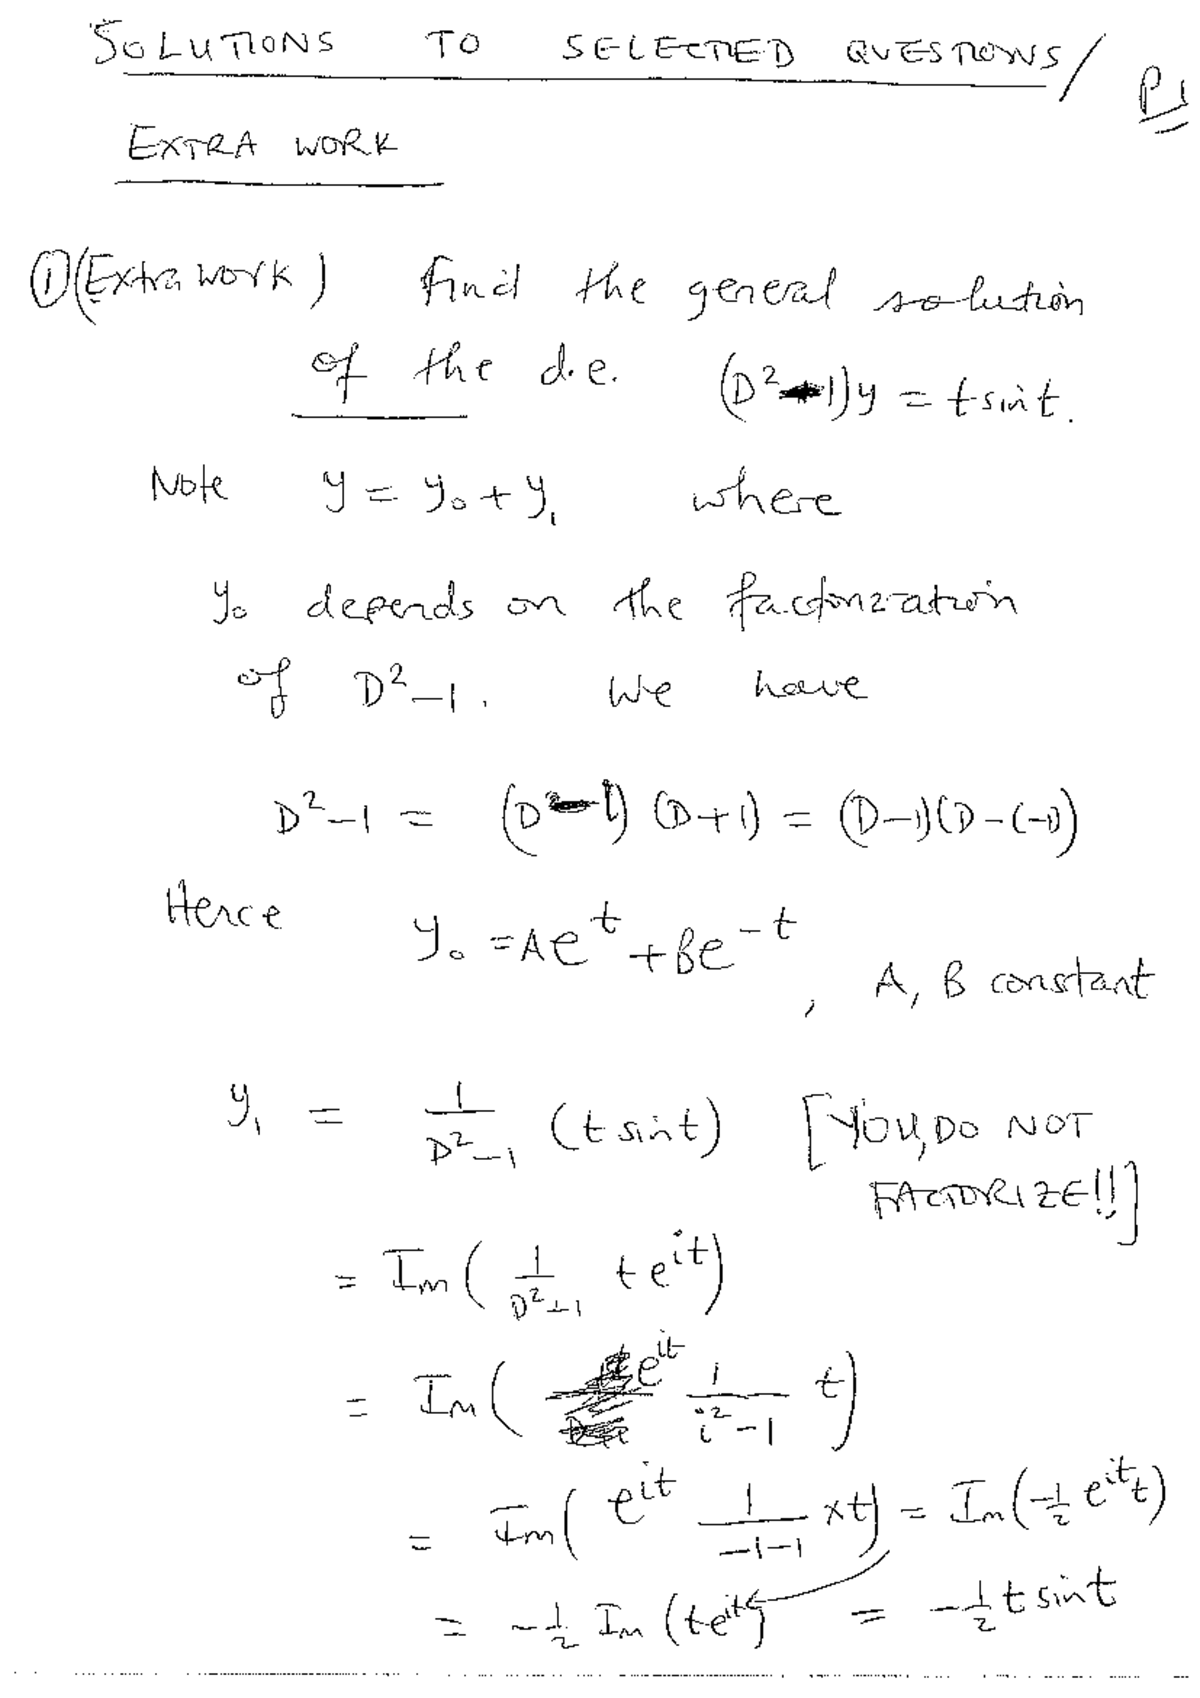 SOLUTIONS TO SELECTED QUESTIONS/ P1
EXTRA WORK
①(Extra work) Find the general solution
of the d.e. (D²-1)y = t sin t.
Note y = y₀ + y₁ where
y₀ depends on the factorization
of D²-1. We have
D²-1 = (D-1)(D+1) = (D-1)(D-(-1))
Hence y₀ = Ae^t + Be^-t, A, B constant
y₁ = 1/(D²-1) (t sin t) [YOU, DO NOT
FACTORIZE!!]
= Im( 1/(D²-1) t e^it)
= Im( e^it 1/(i²-1) t)
= Im( e^it 1/(-1-1) x t) = Im(-1/2 e^it t)
= -1/2 Im (t e^it) = -1/2 t sin t